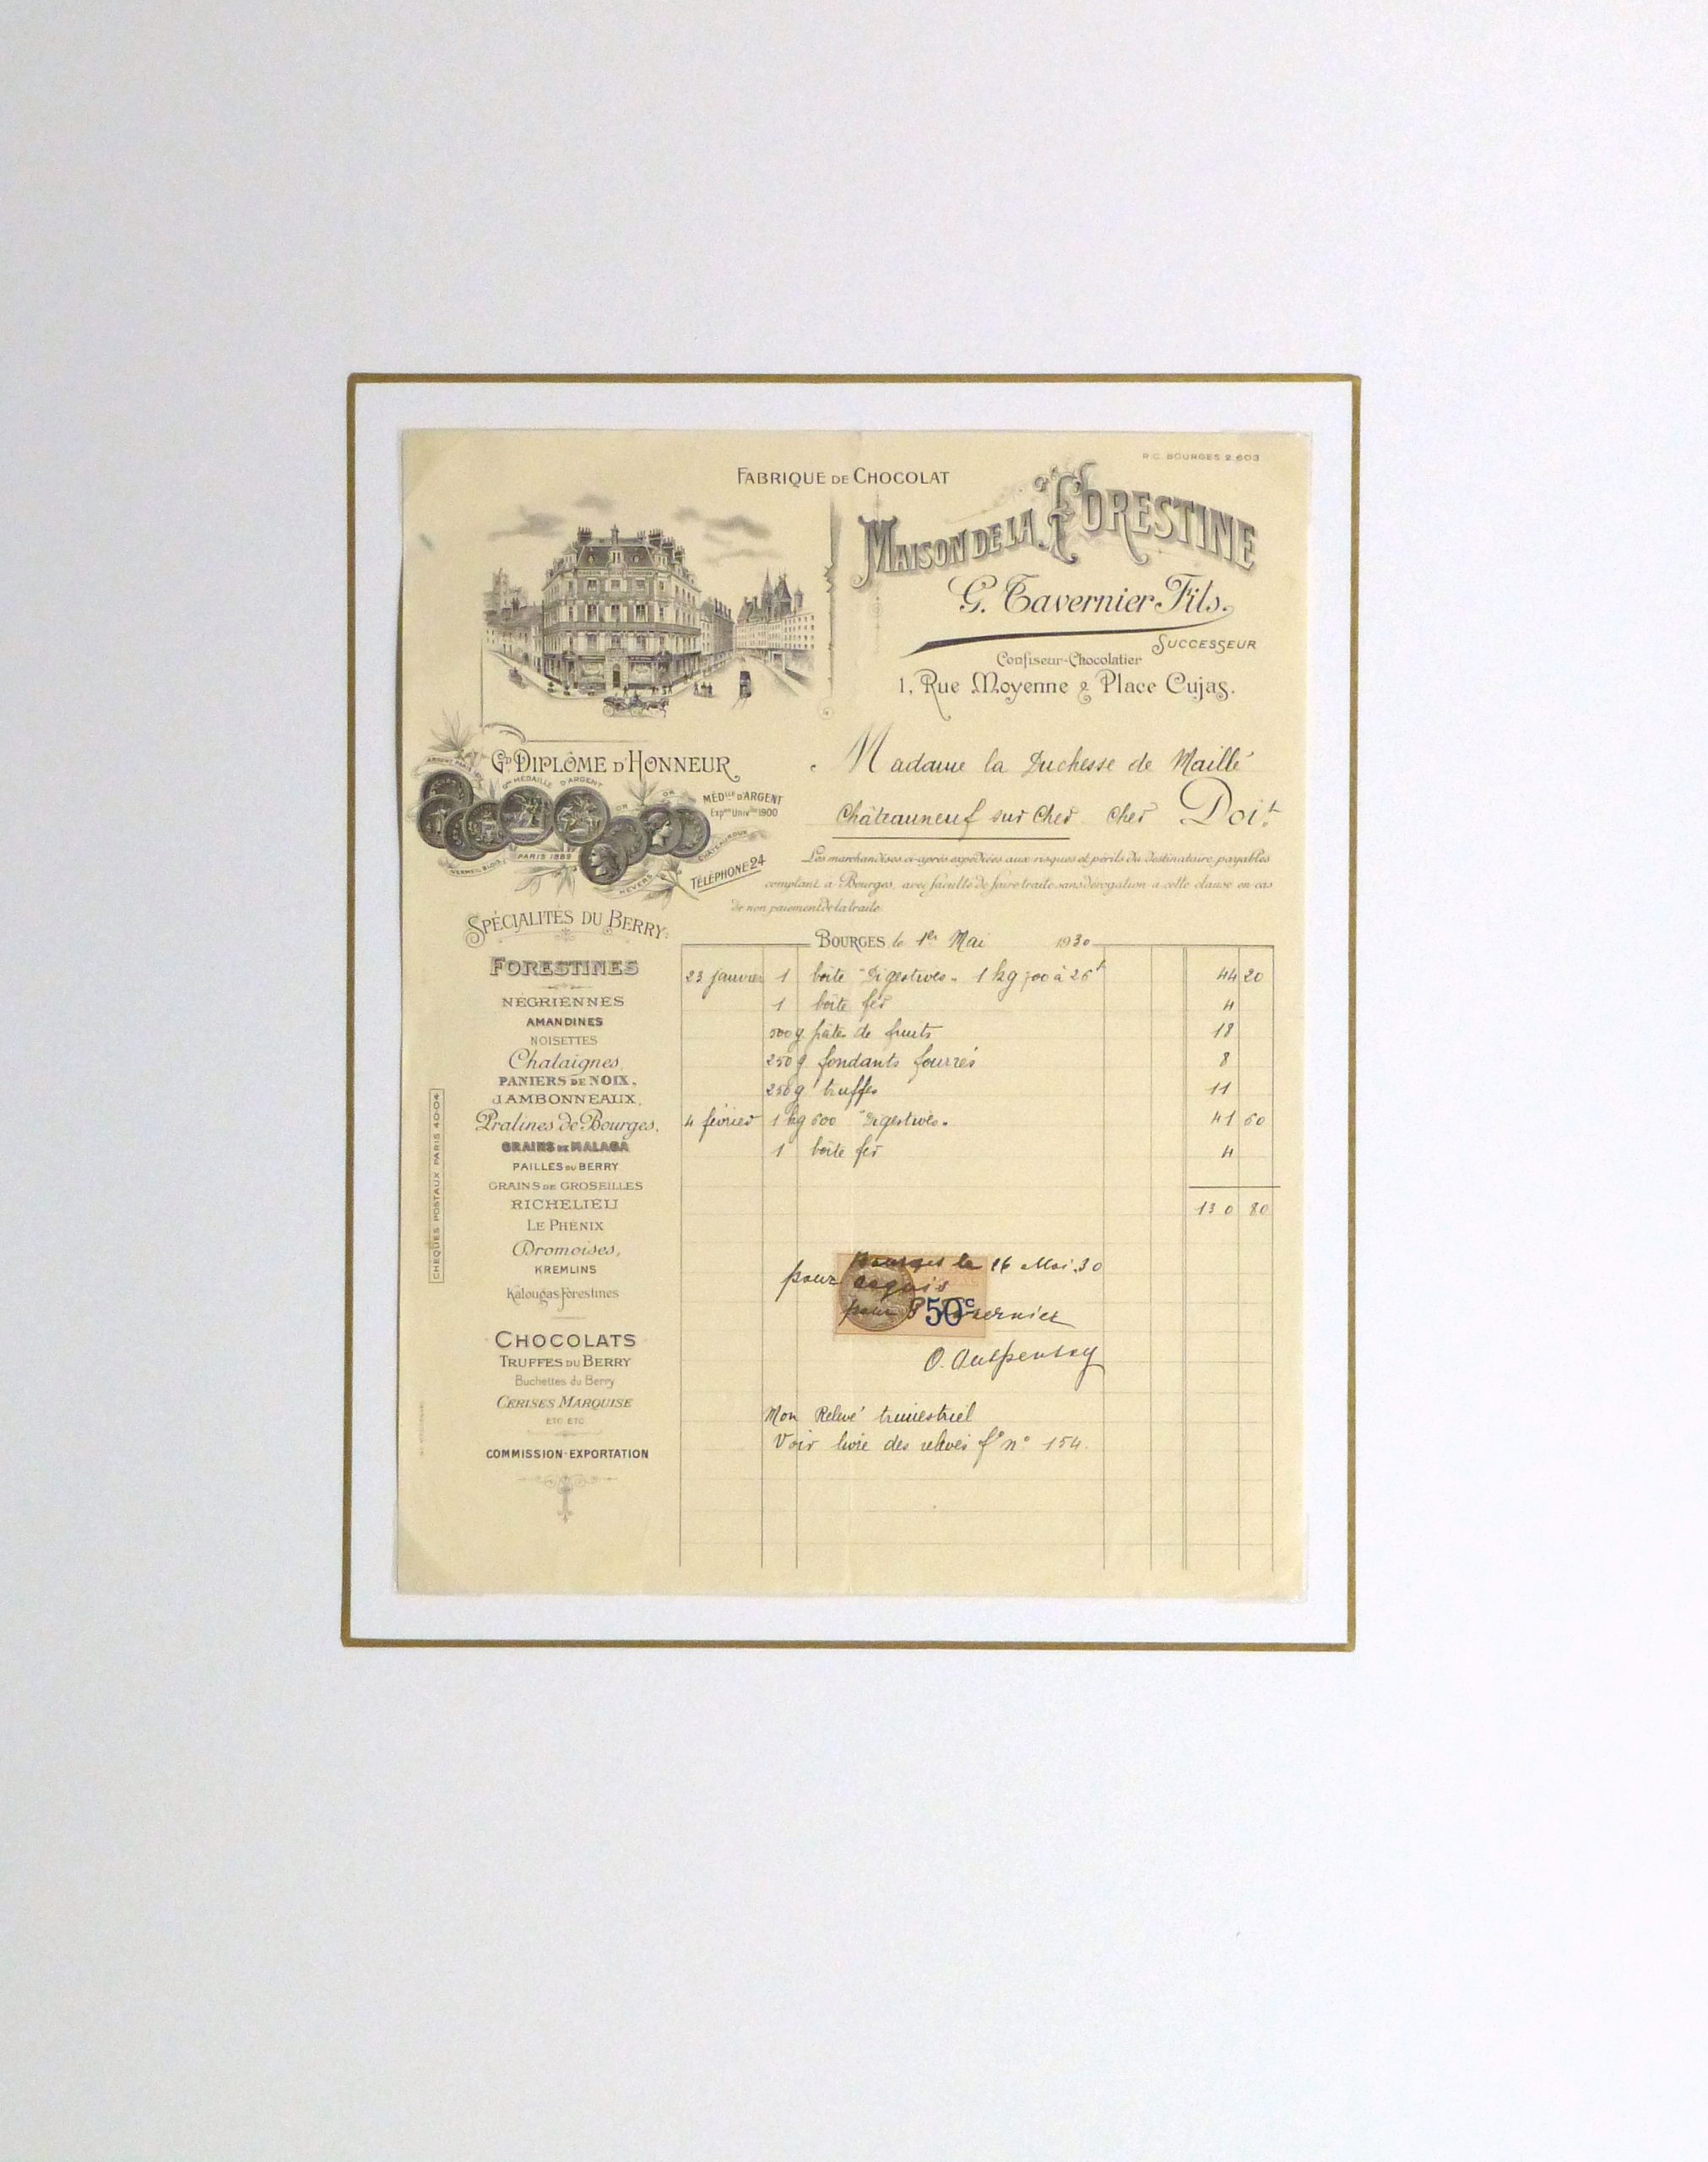 R.C. BOURGES 2.603
FABRIQUE DE CHOCOLAT
MAISON DE LA FORESTINE
G. Tavernier Fils.
SUCCESSEUR
Confiseur-Chocolatier
1, Rue Moyenne & Place Cujas.
Gd DIPLÔME D'HONNEUR
Gde MÉDAILLE D'ARGENT
OR OR
MÉDlle D'ARGENT
Expon Univlle 1900
PARIS 1889
VERMEIL BLOIS
NEVERS
CHATEAUROUX
TÉLÉPHONE 24
Madame la Duchesse de Maillé
Châteauneuf sur Cher Cher Doit
Les marchandises ci-après expédiées aux risques et périls du destinataire, payables
comptant à Bourges, avec faculté de faire traite sans dérogation à cette clause en cas
de non paiement de la traite.
SPÉCIALITÉS DU BERRY:
BOURGES, le 1er Mai 1930
FORESTINES
NÉGRIENNES
AMANDINES
NOISETTES
Chataignes,
PANIERS DE NOIX,
JAMBONNEAUX,
Pralines de Bourges,
GRAINS DE MALAGA
PAILLES DU BERRY
GRAINS DE GROSEILLES
RICHELIEU
LE PHÉNIX
Dromoises,
KREMLINS
Kalougas forestines
CHOCOLATS
TRUFFES DU BERRY
Buchettes du Berry
CERISES MARQUISE
ETC. ETC.
COMMISSION-EXPORTATION
CHEQUES POSTAUX PARIS 40-04
23 janvier 1 boîte "Digestives" 1 kg 700 à 26f 44 20
1 boîte fer 4
500g pâtes de fruits 18
250g fondants fourrés 8
250g truffes 11
4 février 1 kg 600 "Digestives" 41 60
1 boîte fer 4
130 80
Bourges le 16 Mai 30
pour acquis
pour Tavernier
50c
Mon Relevé trimestriel
Voir livre des relevés fo no 154.